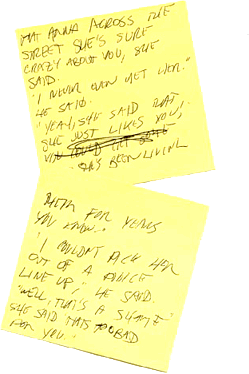 THAT ANNA ACROSS THE
STREET SHE'S SURE
CRAZY ABOUT YOU, SHE
SAID.
"I NEVER EVEN MET HER."
HE SAID.
"YEAH, SHE SAID THAT,
SHE JUST LIKES YOU,
SHE'S BEEN LIVING
THERE FOR YEARS
YOU KNOW."
"I COULDN'T PICK HER
OUT OF A POLICE
LINE UP," HE SAID.
"WELL, THAT'S A SHAME"
SHE SAID "THAT'S TOO BAD
FOR YOU."